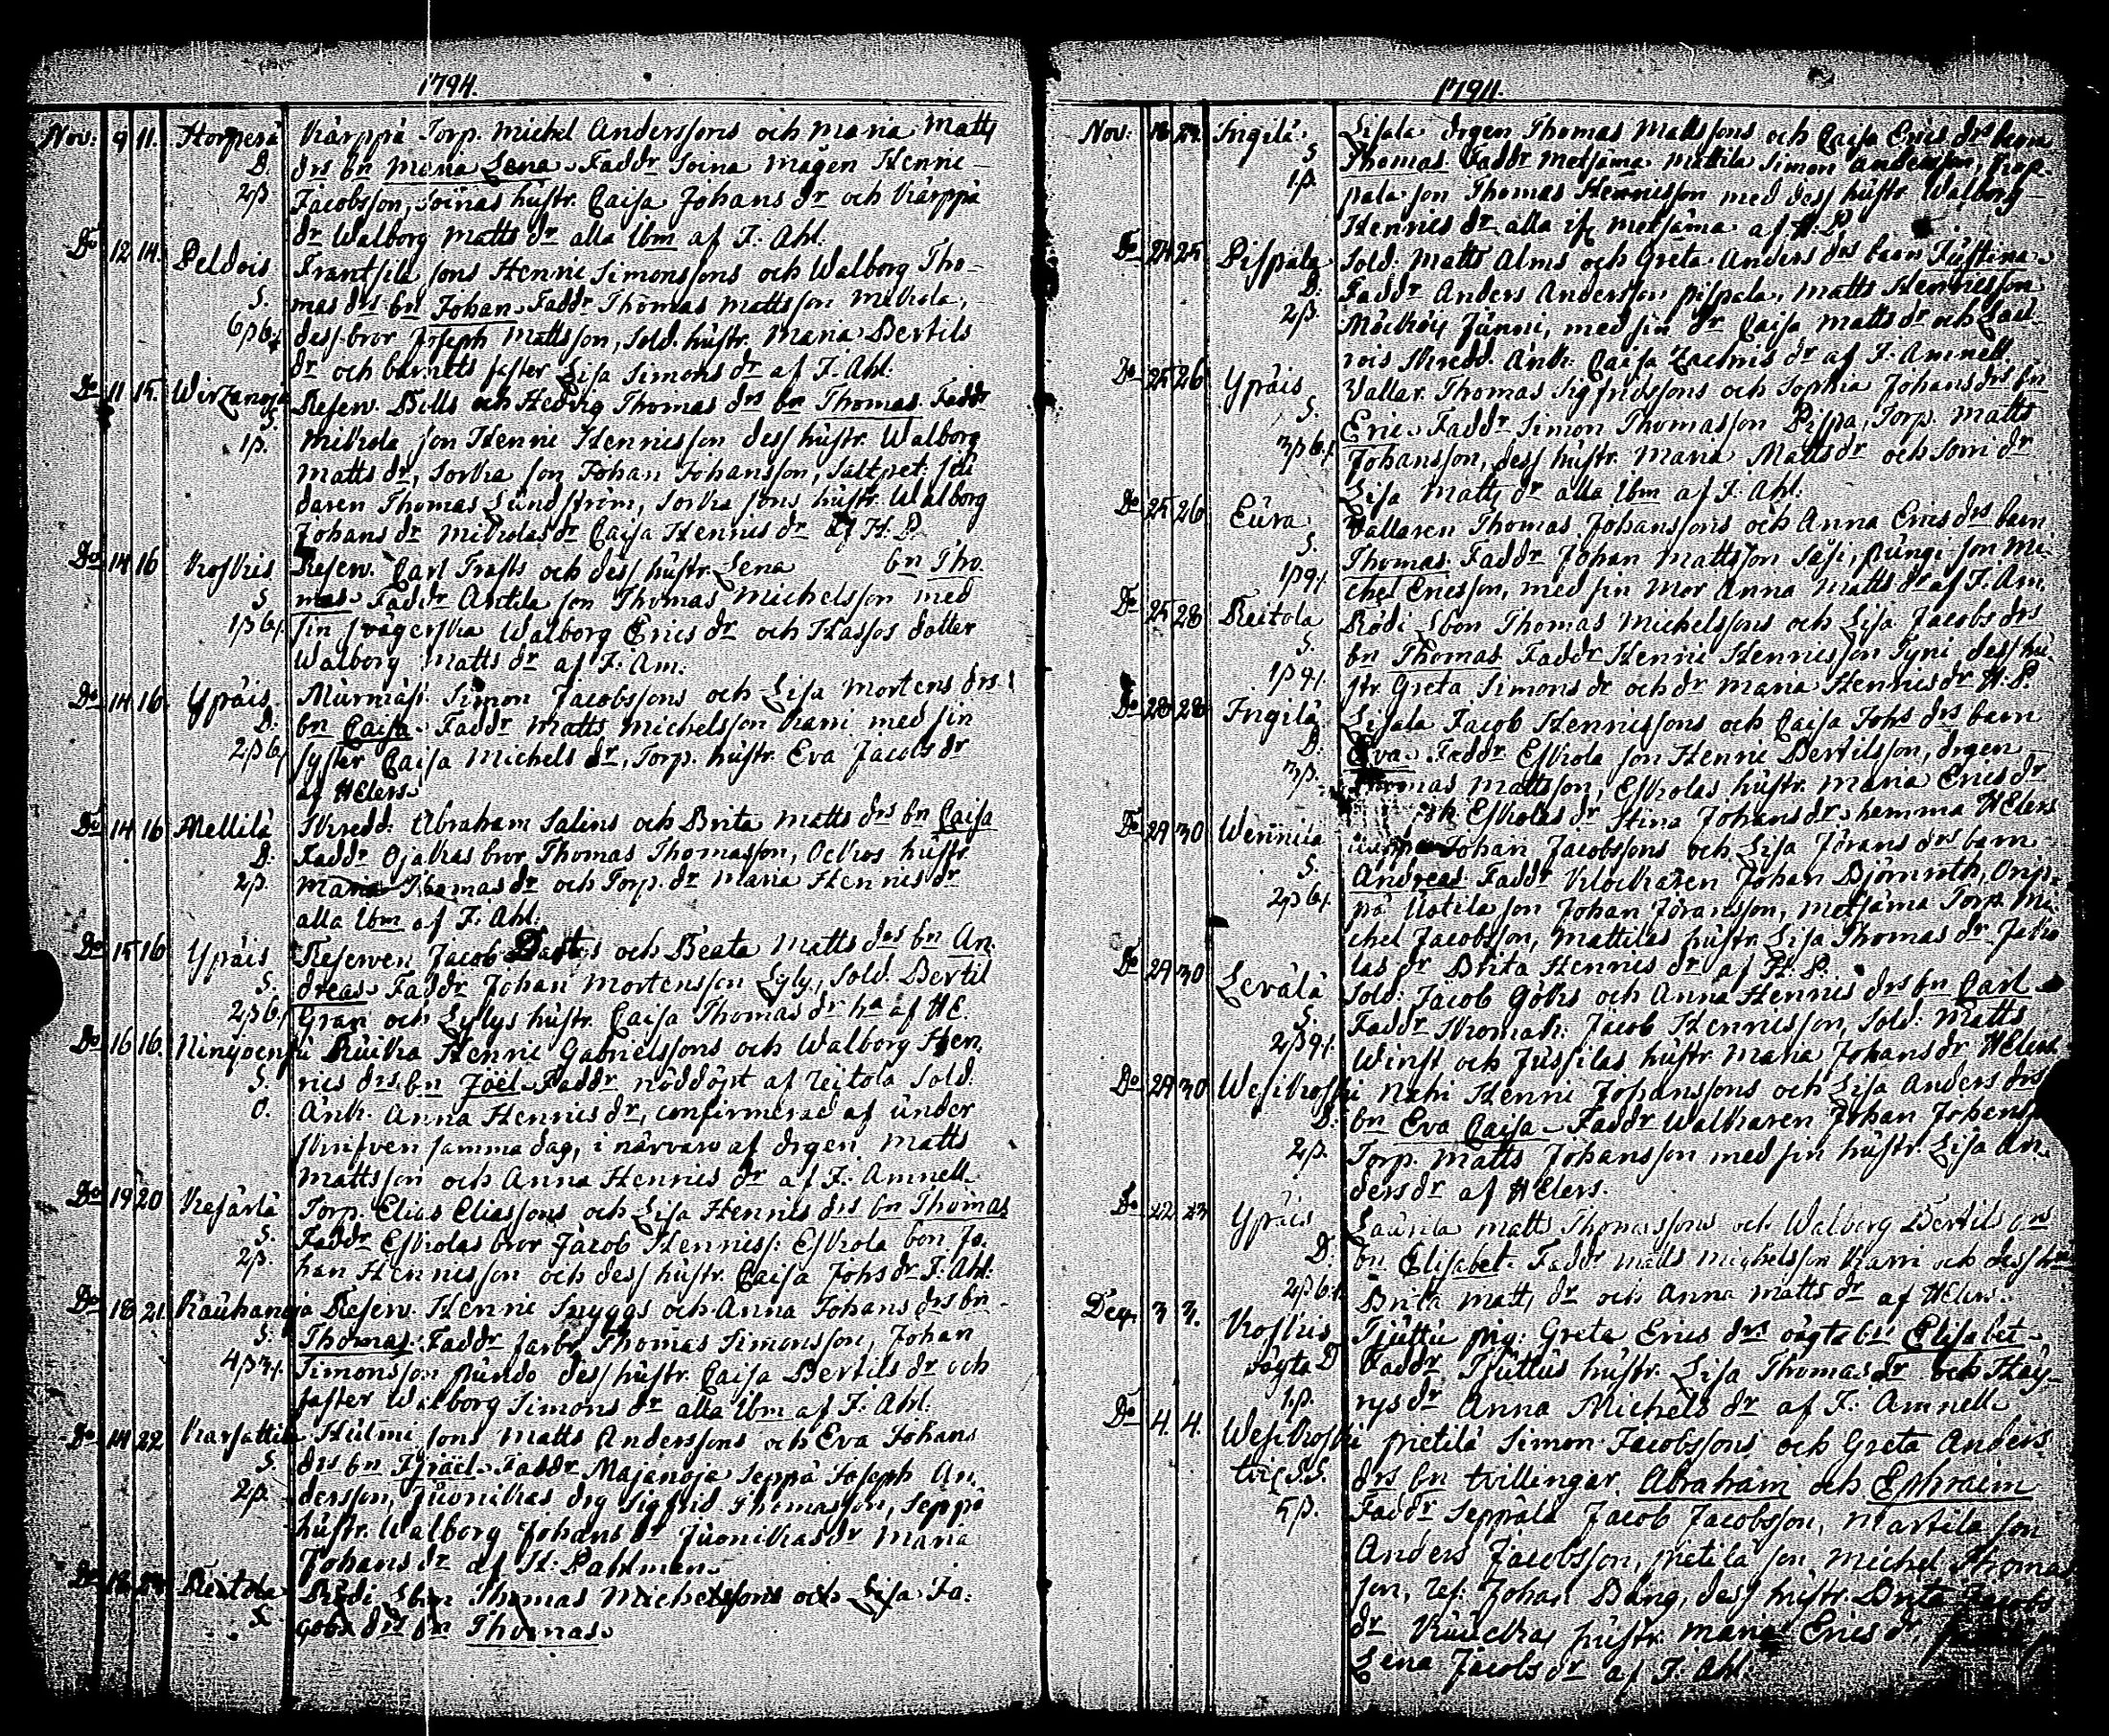 1794.
Nov: 9 11. Horperä Kärppä Torp. Michel Anderssons och Maria Matts
D. drs bn Maria Lena. Faddr Soina mågen Henric
2β Jacobsson, Soinas hustr. Caisa Johans dr och Kärppä
dr Walborg Matts dr alla ibm af J. Ahl.
Do 12 14. Peldois Frantsila sons Henric Simonssons och Walborg Tho-
S. mas drs bn Johan. Faddr Thomas Mattsson Mikola,
6β6 dess bror Joseph Mattsson, Sold. hustr. Maria Bertils
dr och barnets faster Lisa Simons dr af J. Ahl.
Do 11 15. Wirzanoja Reserv. Bills och Hedvig Thomas drs bn Thomas. Faddr
S. Mikola son Henric Henricsson dess hustr. Walborg
1β. Matts dr, Sorka son Johan Johansson, Saltpet: sju
daren Thomas Lundström, Sorka sons hustr. Walborg
Johans dr Mikolas dr Caisa Henrics dr af H. P.
Do 14 16 Koskis Reserv. Carl Trasts och dess hustr. Lena bn Tho
S mas. Faddr Antila son Thomas Michelsson med
1β6 sin svägerska Walborg Erics dr och Hassos dotter
Walborg Matts dr af J. Am.
Do 14 16. Ypäis Murmäst. Simon Jacobssons och Lisa Mortens drs
D: bn Caisa. Faddr Matts Michelsson Karri med sin
2β6 syster Caisa Michels dr, Torp. hustr. Eva Jacobs dr
af HElers.
Do 14 16 Mellilä Skredd: Abraham Salins och Brita Matts drs bn Caisa
D: Faddr Ojakas bror Thomas Thomasson, Ockos hustr.
2β. Maria Thomas dr och Torp. dr Maria Henrics dr
alla ibm af J. Ahl.
Do 15 16 Ypäis Reserven Jacob och Beata Matts drs bn An
S. dreas. Faddr Johan Mortensson Lyly, Sold. Bertil
2β6 Gran och Lylys hustr. Caisa Thomas dr ha af HE.
Do 16 16. Ninijoensu Kuika Henric Gabrielssons och Walborg Hen
S. rics drs bn Joël. Faddr nöddöpt af Reitola Sold.
0. Änk. Anna Henrics dr, confirmerad af under
skrifven samma dag, i närvaro af drgen Matts
Mattsson och Anna Henrics dr af J. Amnell
Do 19 20 Kesärlä Torp. Elias Eliassons och Lisa Henrics drs bn Thomas
S. Faddr Eskolas bror Jacob Henrics: Eskola bon Jo
2β. han Henricsson och dess hustr. Caisa Johs dr J. Ahl:
Do 18 21. Kauhanoja Reserv. Henric Snyggs och Anna Johans drs bn
S: Thomas. Faddr farbr Thomas Simonsson, Johan
4β Simonsson Pundo dess hustr. Caisa Bertils dr och
faster Walborg Simons dr alla ibm af J. Ahl:
Do 14 22 Karsattila Hulmi sons Matts Anderssons och Eva Johans
S drs bn Israël. Faddr Majanoja Seppä Joseph An
2β. dersson, Juonikas drg Sigfrid Thomasson, Seppä
hustr. Walborg Johans dr Juonikas dr Maria
Johans dr af H: Pahlman
Do Reitola Rödi Sbon Thomas Michelssons och Lisa Ja:
S. cobs drs bn Thomas.
1794.
Nov: Ingilä: Lisala drgen Thomas Mattssons och Caisa Erics drs barn
S Thomas. Faddr Metsäma Mattila Simon Andersson, Prop
1β. pala son Thomas Henricsson med dess hustr. Walborg
Henrics dr alla if Metsäma af H. P
Do 24 25 Pispala Sold. Matts Alms och Greta Anders drs barn Justina
D. Faddr Anders Andersson Pispala, Matts Henricsson
2β. Junni, med sin dr Caisa Matts dr och Lau-
rois Skredd. Änk: Caisa dr af J. Amnell
Do 25 26 Ypäis Vallar. Thomas Sigfridssons och Sophia Johans drs bn
S. Eric. Faddr Simon Thomasson Pispa, Torp. Matts
3β6 Johansson, dess hustr. Maria Matts dr och Sorri dr
Lisa Matts dr alla ibm af J. Ahl.
Do 25 26 Eura Vallaren Thomas Johanssons och Anna Erics drs barn
S. Thomas. Faddr Johan Mattsson Säsi, Pungi son Mi-
1β9 chel Ericsson, med sin mor Anna Matts dr af J. Am.
Do 25 28 Reitola Rödi Sbon Thomas Michelssons och Lisa Jacobs drs
S. bn Thomas Faddr Henric Henricsson Tyni dess hu-
1β9 str. Greta Simons dr och dr Maria Henrics dr H. P.
Do 28 28 Ingilä Lisala Jacob Henricssons och Caisa Johs drs barn
D: Eva. Faddr Eskola son Henric Bertilsson, drgen
3β. Thomas Mattsson, Eskolas hustr. Maria Erics dr
och Eskolas dr Stina Johans dr hemma HElers
Do 29 30 Wennila Johan Jacobssons och Lisa Jörans drs barn
S. Andreas Faddr Klockaren Johan Björnroth, Orip
2β6 pä Uotila son Johan Jöransson, Metsäma Torp. Mi
chel Jacobsson, Mattilas hustr. Lisa Thomas dr Jako
las dr Brita Henrics dr af H. P.
Do 29 30 Levälä Sold: Jacob Göks och Anna Henrics drs bn Carl
S. Faddr Skomak: Jacob Henricsson, Sold: Matts
2β9 Winst och Jussilas hustr. Maria Johans dr HElers
Do 29 30 Wesikoski Nahi Henric Johanssons och Lisa Anders drs
D: bn Eva Caisa. Faddr Walkaren Johan Johanss
2β. Torp. Matts Johansson med sin hustr. Lisa An
ders dr af HElers.
Do 22 23 Ypäis Laurila Matts Thomassons och Walborg Bertils drs
D. bn Elisabet. Faddr Matts Michelsson Karri och dess hu
2β6 Brita Matts dr och Anna Matts dr af HElers.
Dec. 3 3. Koskis Tjuttu pig: Greta Erics drs oägta bn Elisabet
oägta D Faddr Tjuttus hustr. Lisa Thomas dr och Häy-
1β. rys dr Anna Michels dr af J. Amnell
Do 4. 4. Wesikoski Pietilä Simon Jacobssons och Greta Anders
tvil S.S. drs bn tvillingar. Abraham och Ephraim
5β. Faddr Seppälä Jacob Jacobsson, Martila son
Anders Jacobsson, Pietilä son Michel Thomas
son, Res: Johan Bång, dess hustr. Brita Jacobs
dr hustr. Maria Erics dr
Lena Jacobs dr af J. Ahl: